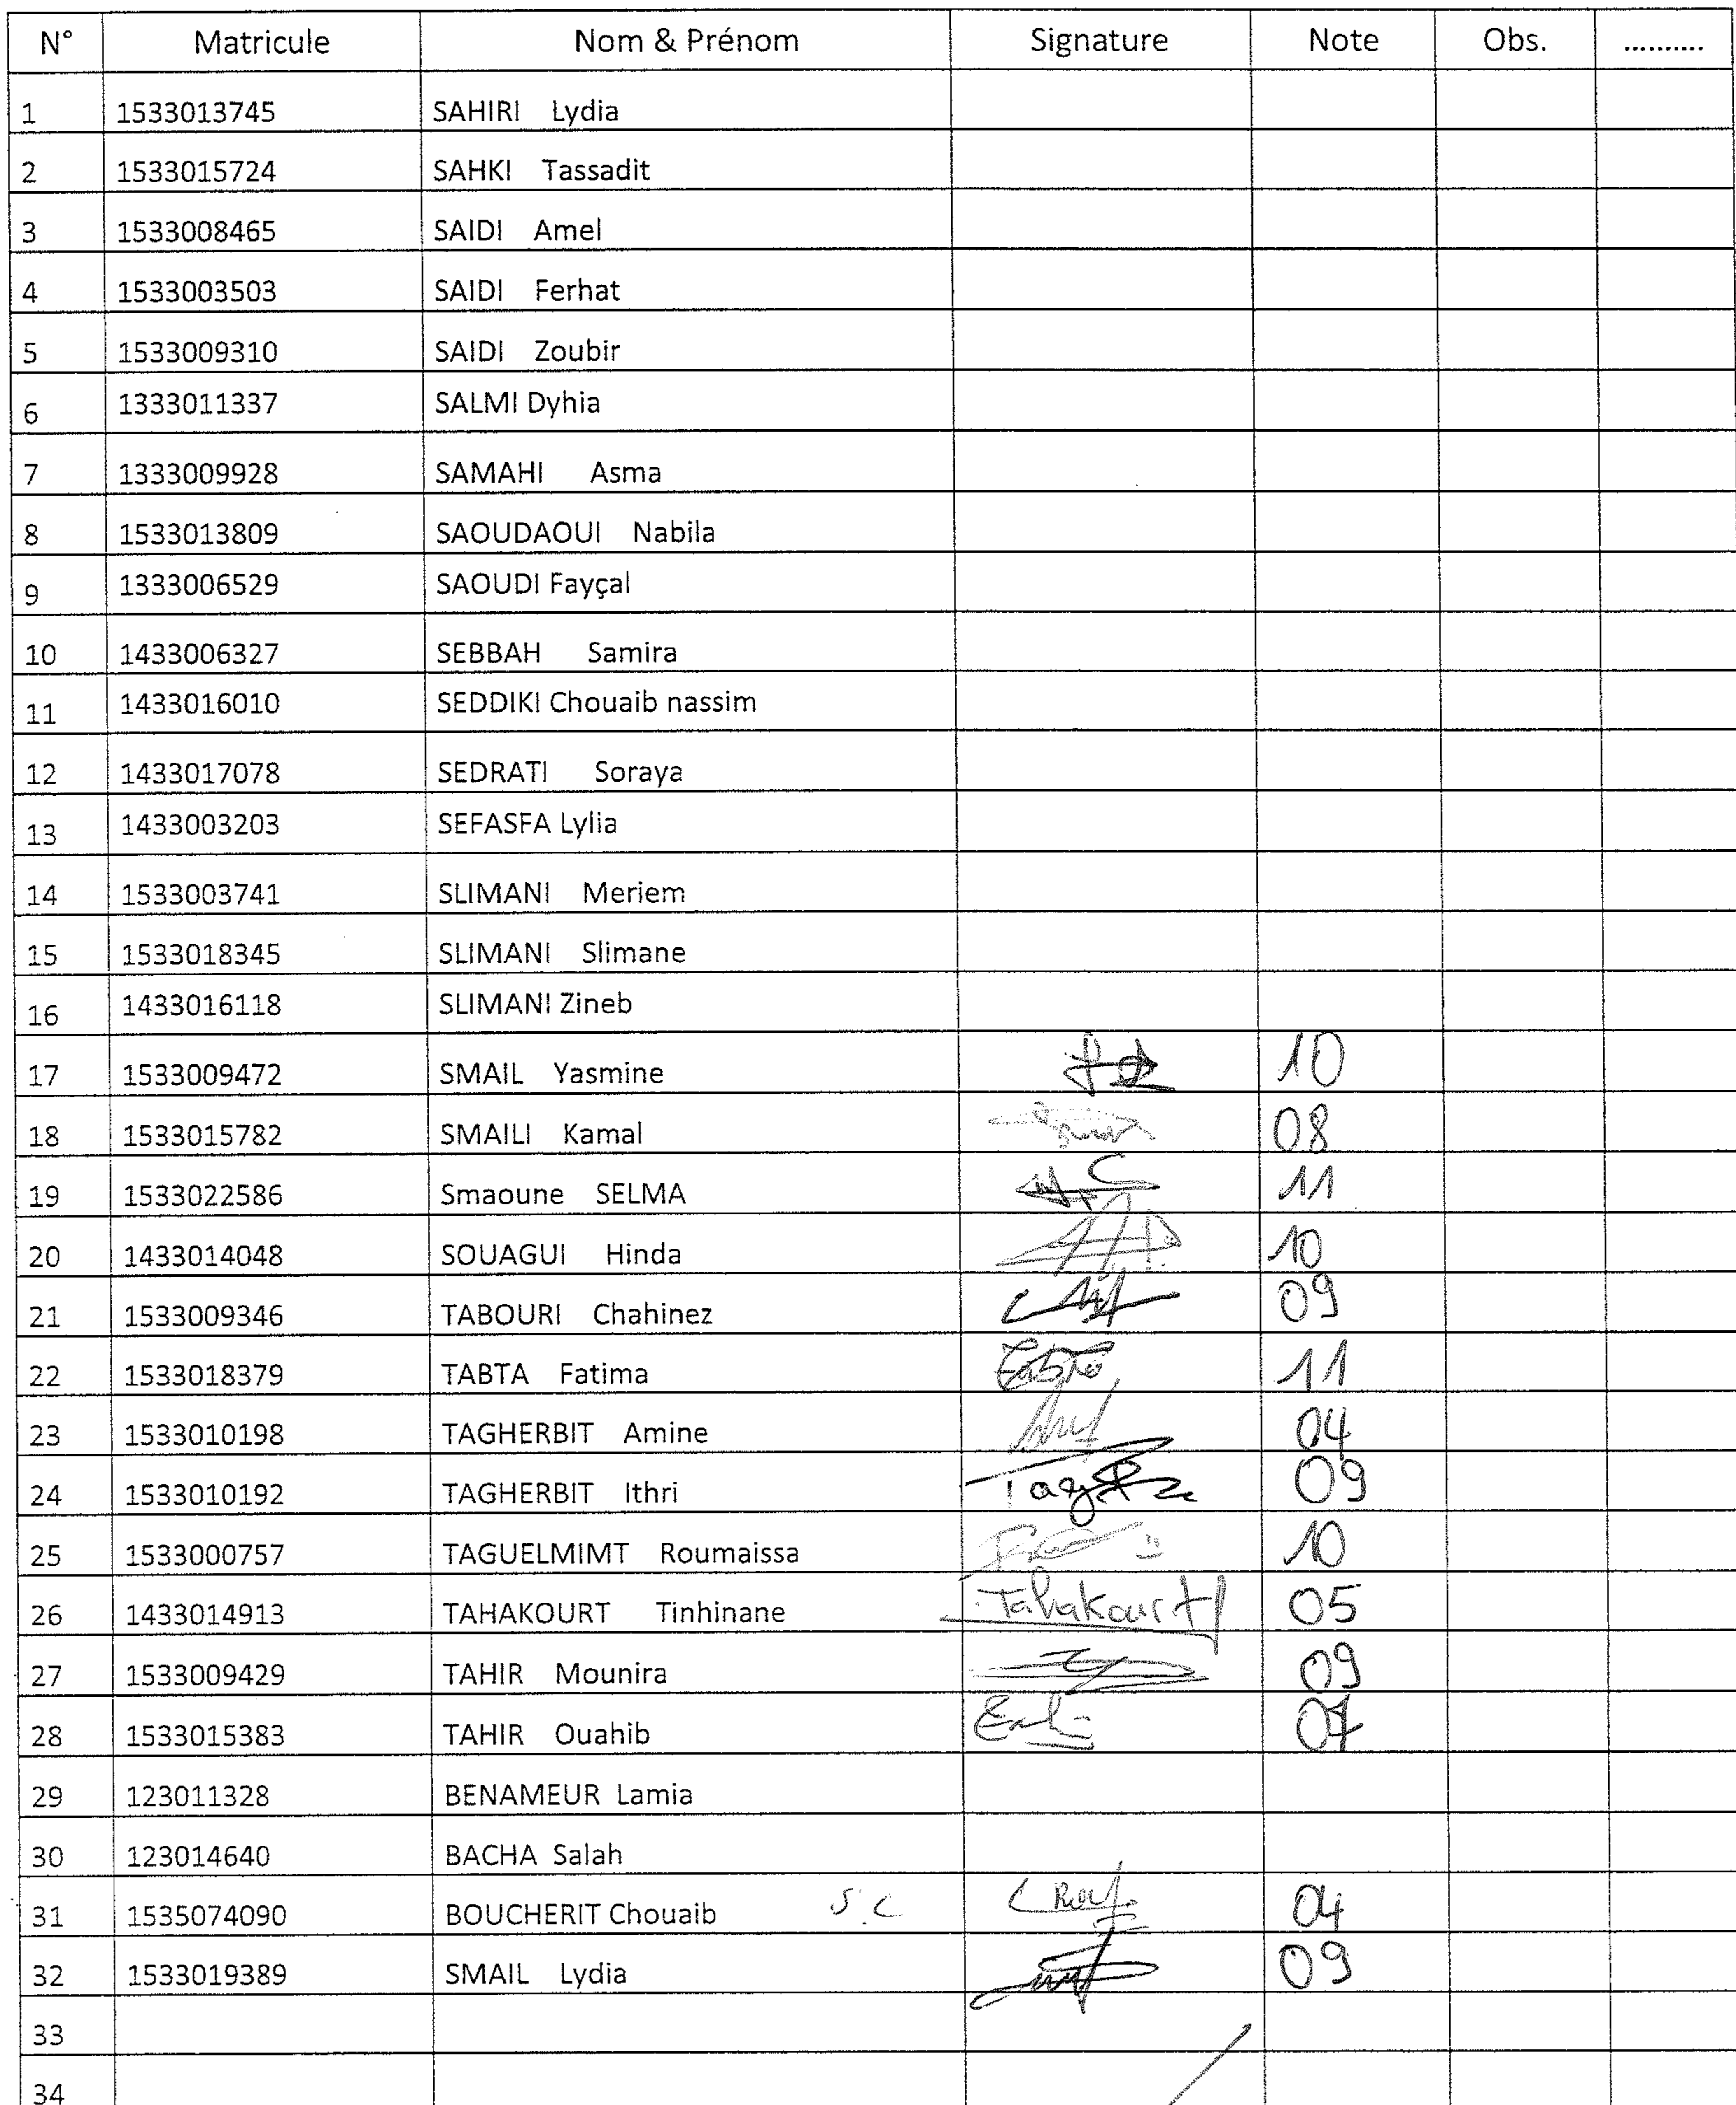 N° Matricule Nom & Prénom Signature Note Obs. ..........
1 1533013745 SAHIRI Lydia
2 1533015724 SAHKI Tassadit
3 1533008465 SAIDI Amel
4 1533003503 SAIDI Ferhat
5 1533009310 SAIDI Zoubir
6 1333011337 SALMI Dyhia
7 1333009928 SAMAHI Asma
8 1533013809 SAOUDAOUI Nabila
9 1333006529 SAOUDI Fayçal
10 1433006327 SEBBAH Samira
11 1433016010 SEDDIKI Chouaib nassim
12 1433017078 SEDRATI Soraya
13 1433003203 SEFASFA Lylia
14 1533003741 SLIMANI Meriem
15 1533018345 SLIMANI Slimane
16 1433016118 SLIMANI Zineb
17 1533009472 SMAIL Yasmine 10
18 1533015782 SMAILI Kamal 08
19 1533022586 Smaoune SELMA 11
20 1433014048 SOUAGUI Hinda 10
21 1533009346 TABOURI Chahinez 09
22 1533018379 TABTA Fatima 11
23 1533010198 TAGHERBIT Amine 04
24 1533010192 TAGHERBIT Ithri 09
25 1533000757 TAGUELMIMT Roumaissa 10
26 1433014913 TAHAKOURT Tinhinane Tahakourt 05
27 1533009429 TAHIR Mounira 09
28 1533015383 TAHIR Ouahib 07
29 123011328 BENAMEUR Lamia
30 123014640 BACHA Salah
31 1535074090 BOUCHERIT Chouaib 04
32 1533019389 SMAIL Lydia 09
33
34